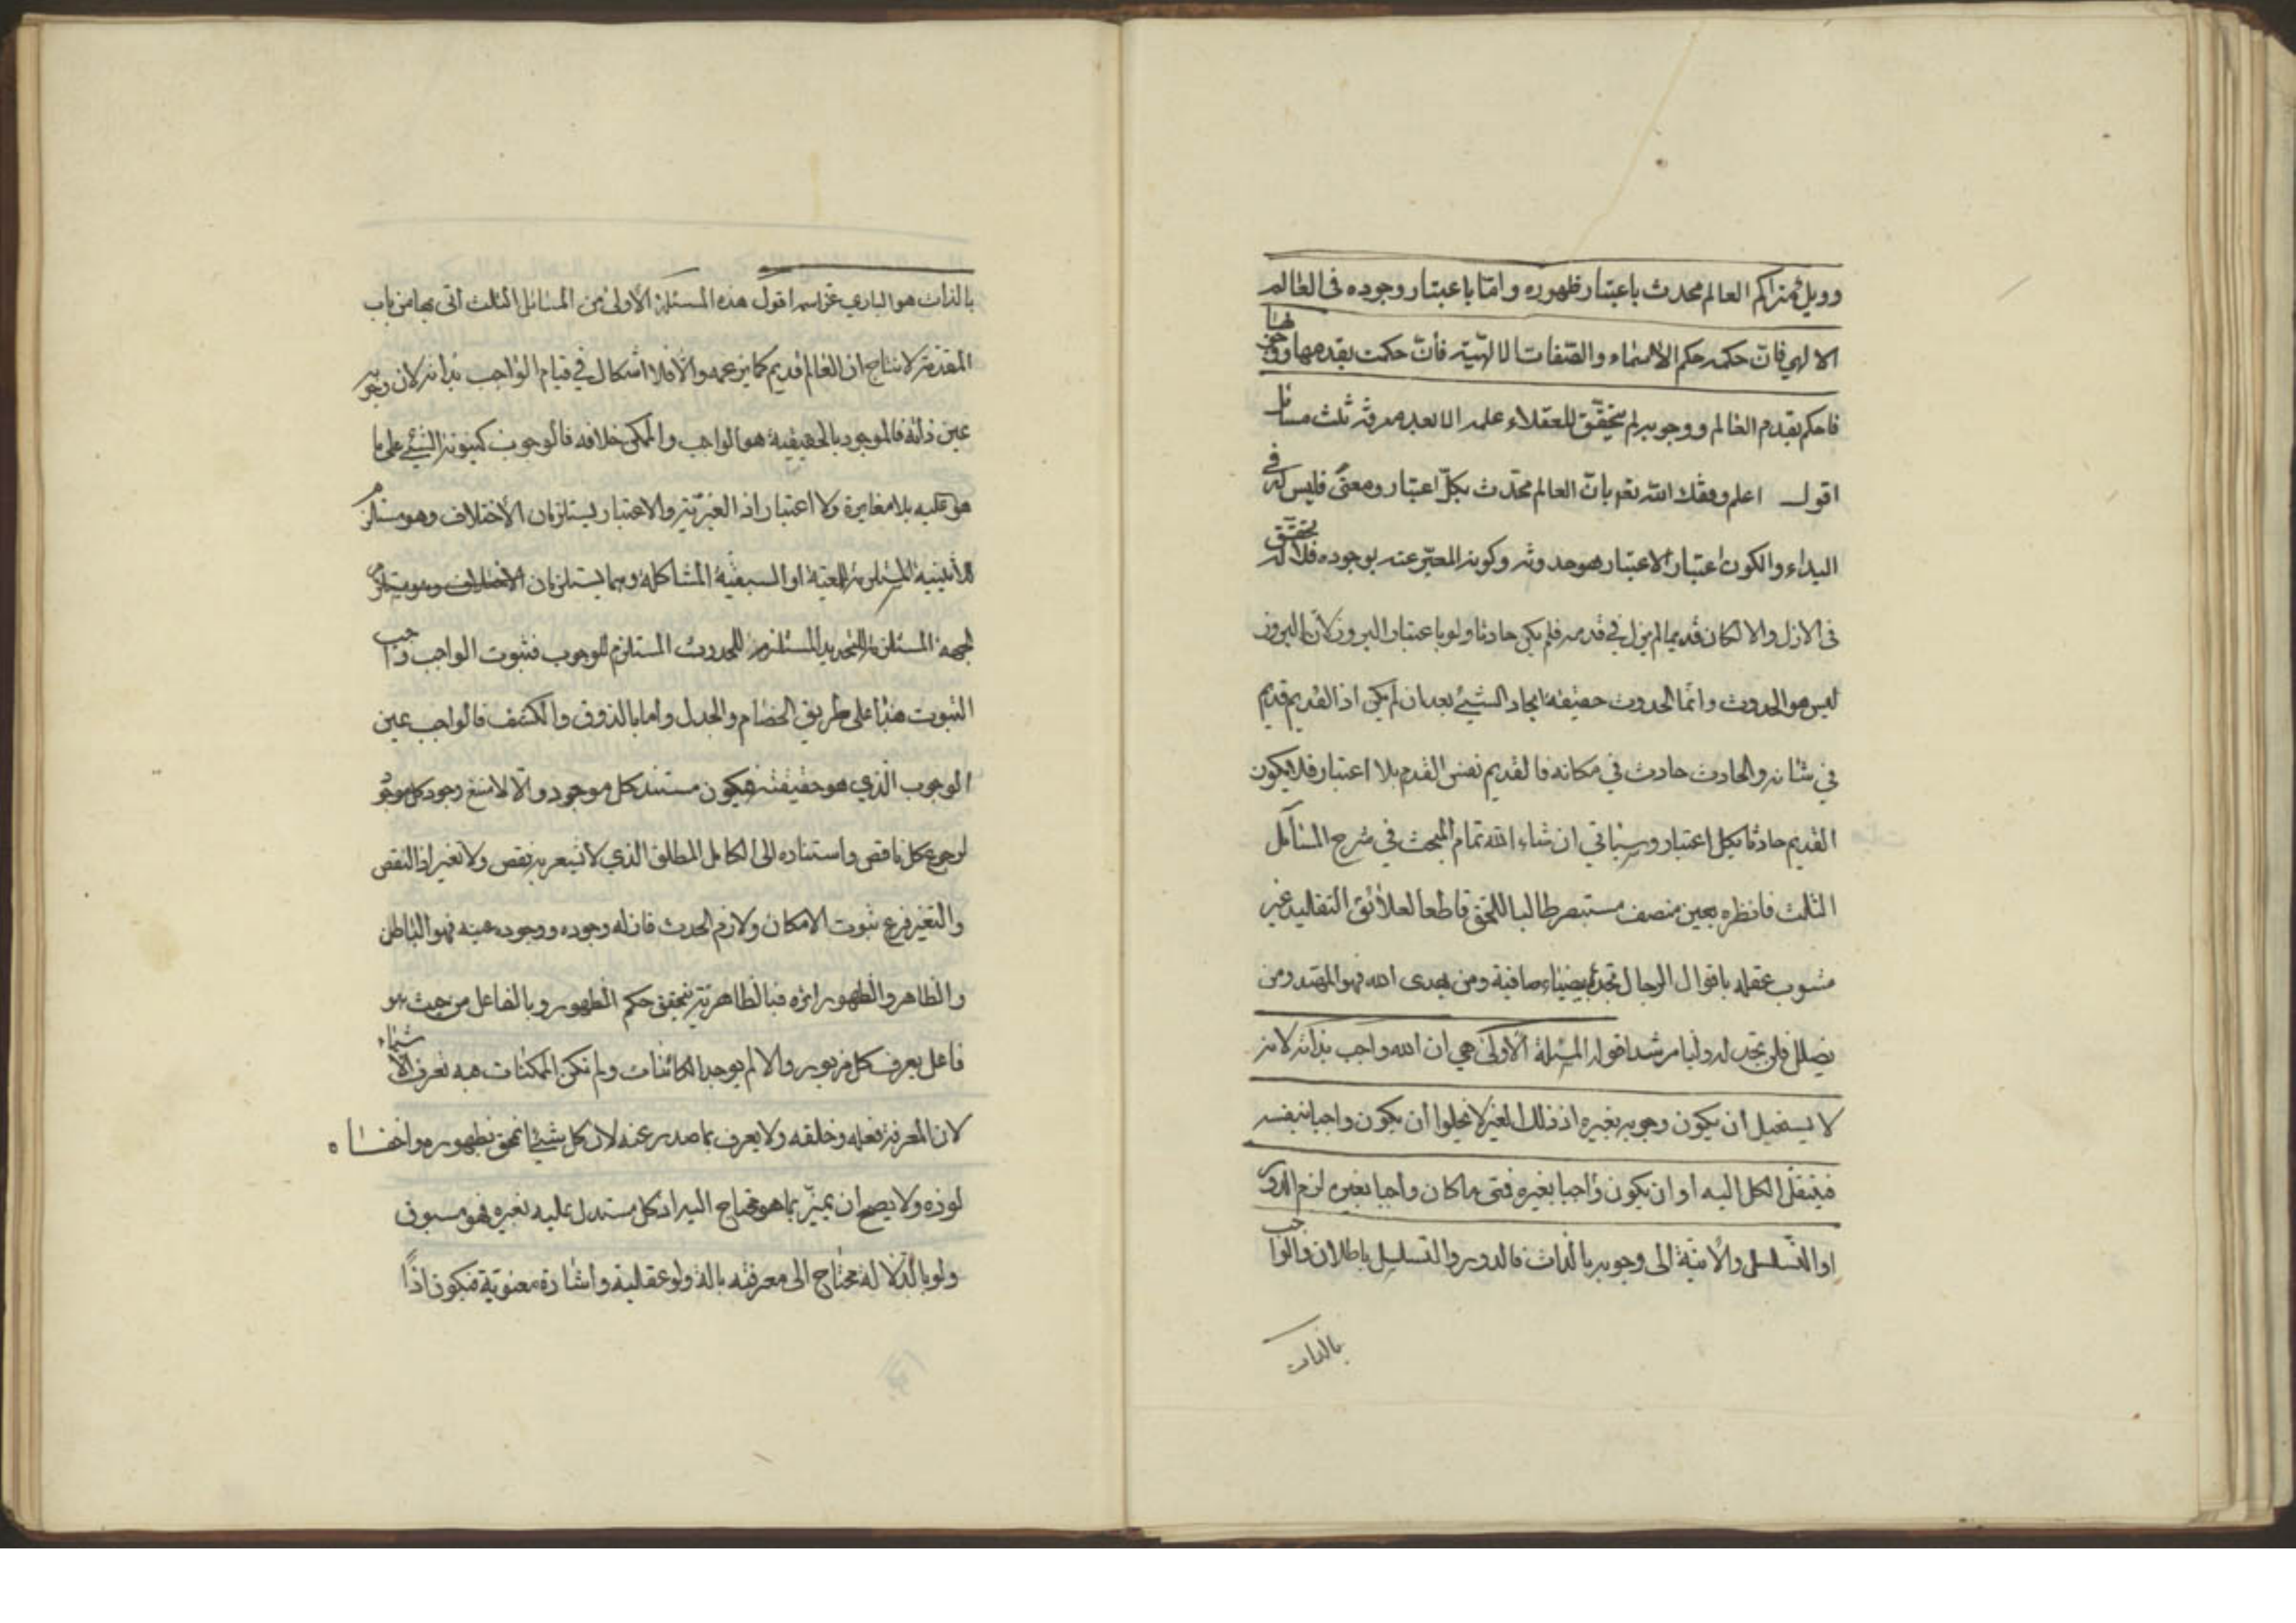 العالم محدث باعتبار ظهوره وامّا باعتبار وجوده فى العالم
الالهي فانّ حكمه حكم الاسماء والصّفات الالهيّة فانّ حكمت بقدمها
فاحكم بقدم العالم ووجوبه لم يتحقّق للعقلاء علمه الا بعد معرفة ثلث مسائل
اقول اعلم وفقك الله بانّ العالم محدّث بكلّ اعتبار ومعنى فليس له في
البداء والكون اعتبار الاعتبار هو حدوثه وكونه المعبّر عنه بوجوده فلا تحقّق له
فى الازل والا لكان قديما لم يزل في قدمه فلم يكن حادثا ولو باعتبار البروز لانّ البروز
ليس هو الحدوث وانّما الحدوث حقيقة ايجاد الشيء بعد ان لم يكن اذ القديم قديم
في شانه والحادث حادث في مكانه فالقديم نفس القدم بلا اعتبار فلا يكون
القديم حادثا بكل اعتبار وسياتي ان شاء الله تمام المبحث في شرح المسائل
الثلث فانظره بعين منصف مستبصر طالبا للحق قاطعا لعلائق التقليد غير
مشوب عقله باقوال الرجال تجده بيضاء صافية ومن يهدى الله فهو المهتد ومن
يضلل فلن تجد له وليا مرشدا قوله المسئلة الاولى هي ان الله واجب بذاته لانه
لا يستحيل ان يكون وجوبه بغيره اذ ذلك الغير لا يخلوا ان يكون واجبا بنفسه
فينتقل الكل اليه او ان يكون واجبا بغيره فمتى ما كان واجبا بغيره لزم الدور
او التسلسل والاتية الى وجوبه بالذات فالدور والتسلسل باطلان فالواجب
بالذات
بالذات هو الباري عزّ اسمه اقول هذه المسئلة الاولى من المسائل الثلث اتى بها من باب
المقدّمة لانتاج ان العالم قديم كما يزعمه والا فلا اشكال في قيام الواجب بذاته لان وجوبه
عين ذاته فالموجود بالحقيقية هو الواجب والممكن خلافه فالوجوب كينونة الشيء على ما
هو عليه بلا مغايرة ولا اعتبار اذ الغيريّة والاعتبار يستلزمان الاختلاف وهو مستلزم
للاثنينية المستلزمة للمعيّة او السبقيّة المشاكلة وهما يستلزمان
لجهة المستلزمة للتحديد المستلزم للحدوث المستلزم للوجوب فثبوت الواجب واجب
الثبوت هذا على طريق الخصام والجدل واما بالذوق والكشف فالواجب عين
الوجوب الّذي هو حقيقته فيكون مستند كل موجود والا لامتنع وجود كل موجود
لرجوع كل ناقص واستناده الى الكامل المطلق الذي لا نقص ولا تغير اذ النقص
والتغير فرع ثبوت الامكان ولازم الحدث فان له وجوده ووجوده عينه فهو الباطن
والظاهر والظهور اثره فبالظاهريّة يتحقق حكم الظهور وبالفاعل من حيث هو
فاعل يعرف كل مربوب والا لم يوجد الكائنات ولم تكن الممكنات فبه تعرف الاشياء
لان المعرفة فعله وخلقه ولا يعرف بما صدر عنه لان كل شيء بظهوره
ولا يصح ان يميّز بما هو محتاج اليه اذ كل مستدل عليه بغيره فهو مسبوق
ولو بالدّلالة محتاج الى معرفته بالة ولو عقلية واشارة معنويّة فيكون اذًا